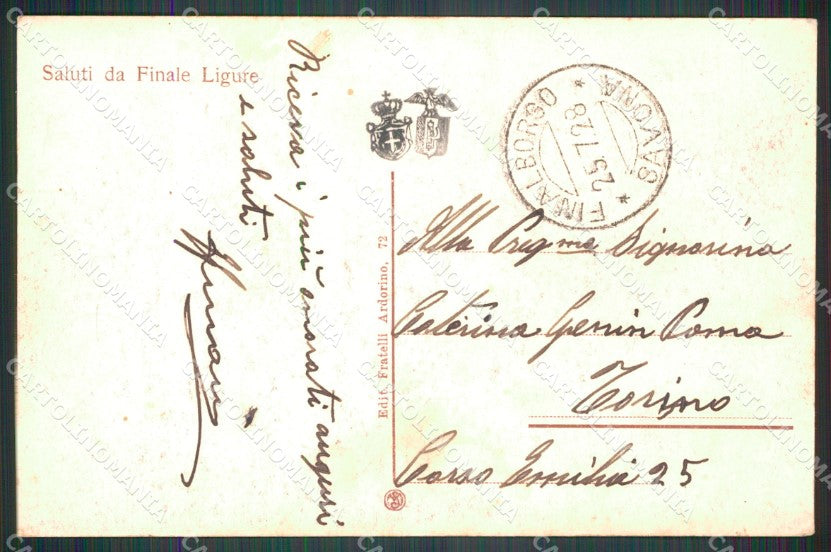 Saluti da Finale Ligure
Riceva i più onorati auguri
e saluti
Edit. Fratelli Ardorino, 72
FINALBORGO * SAVONA *
25.7.28
Alla Preg.ma Signorina
Caterina Gerin Roma
Torino
Corso Emilia 25
CARTOLINOMANIA